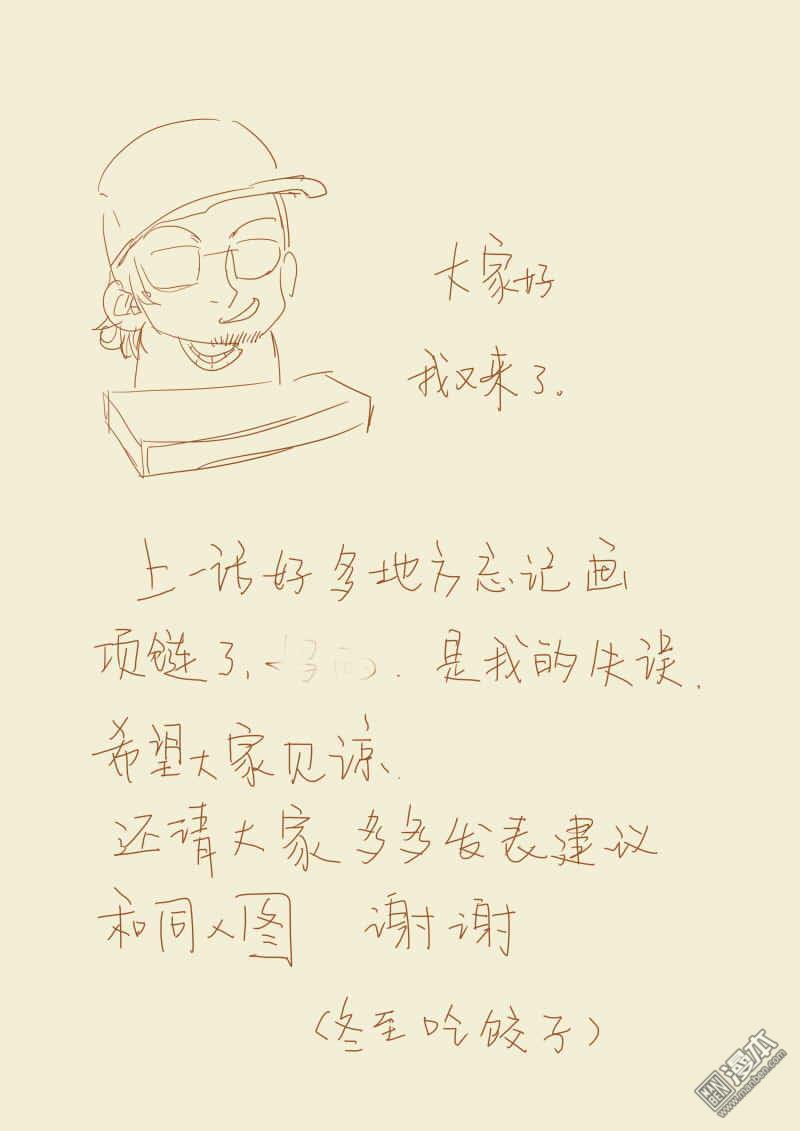 大家好
我又来了。
上一话好多地方忘记画
项链了、是我的失误.
希望大家见谅.
还请大家多多发表建议
和同人图 谢谢
(冬至吃饺子)
MAN BEN 漫本
www.manben.com